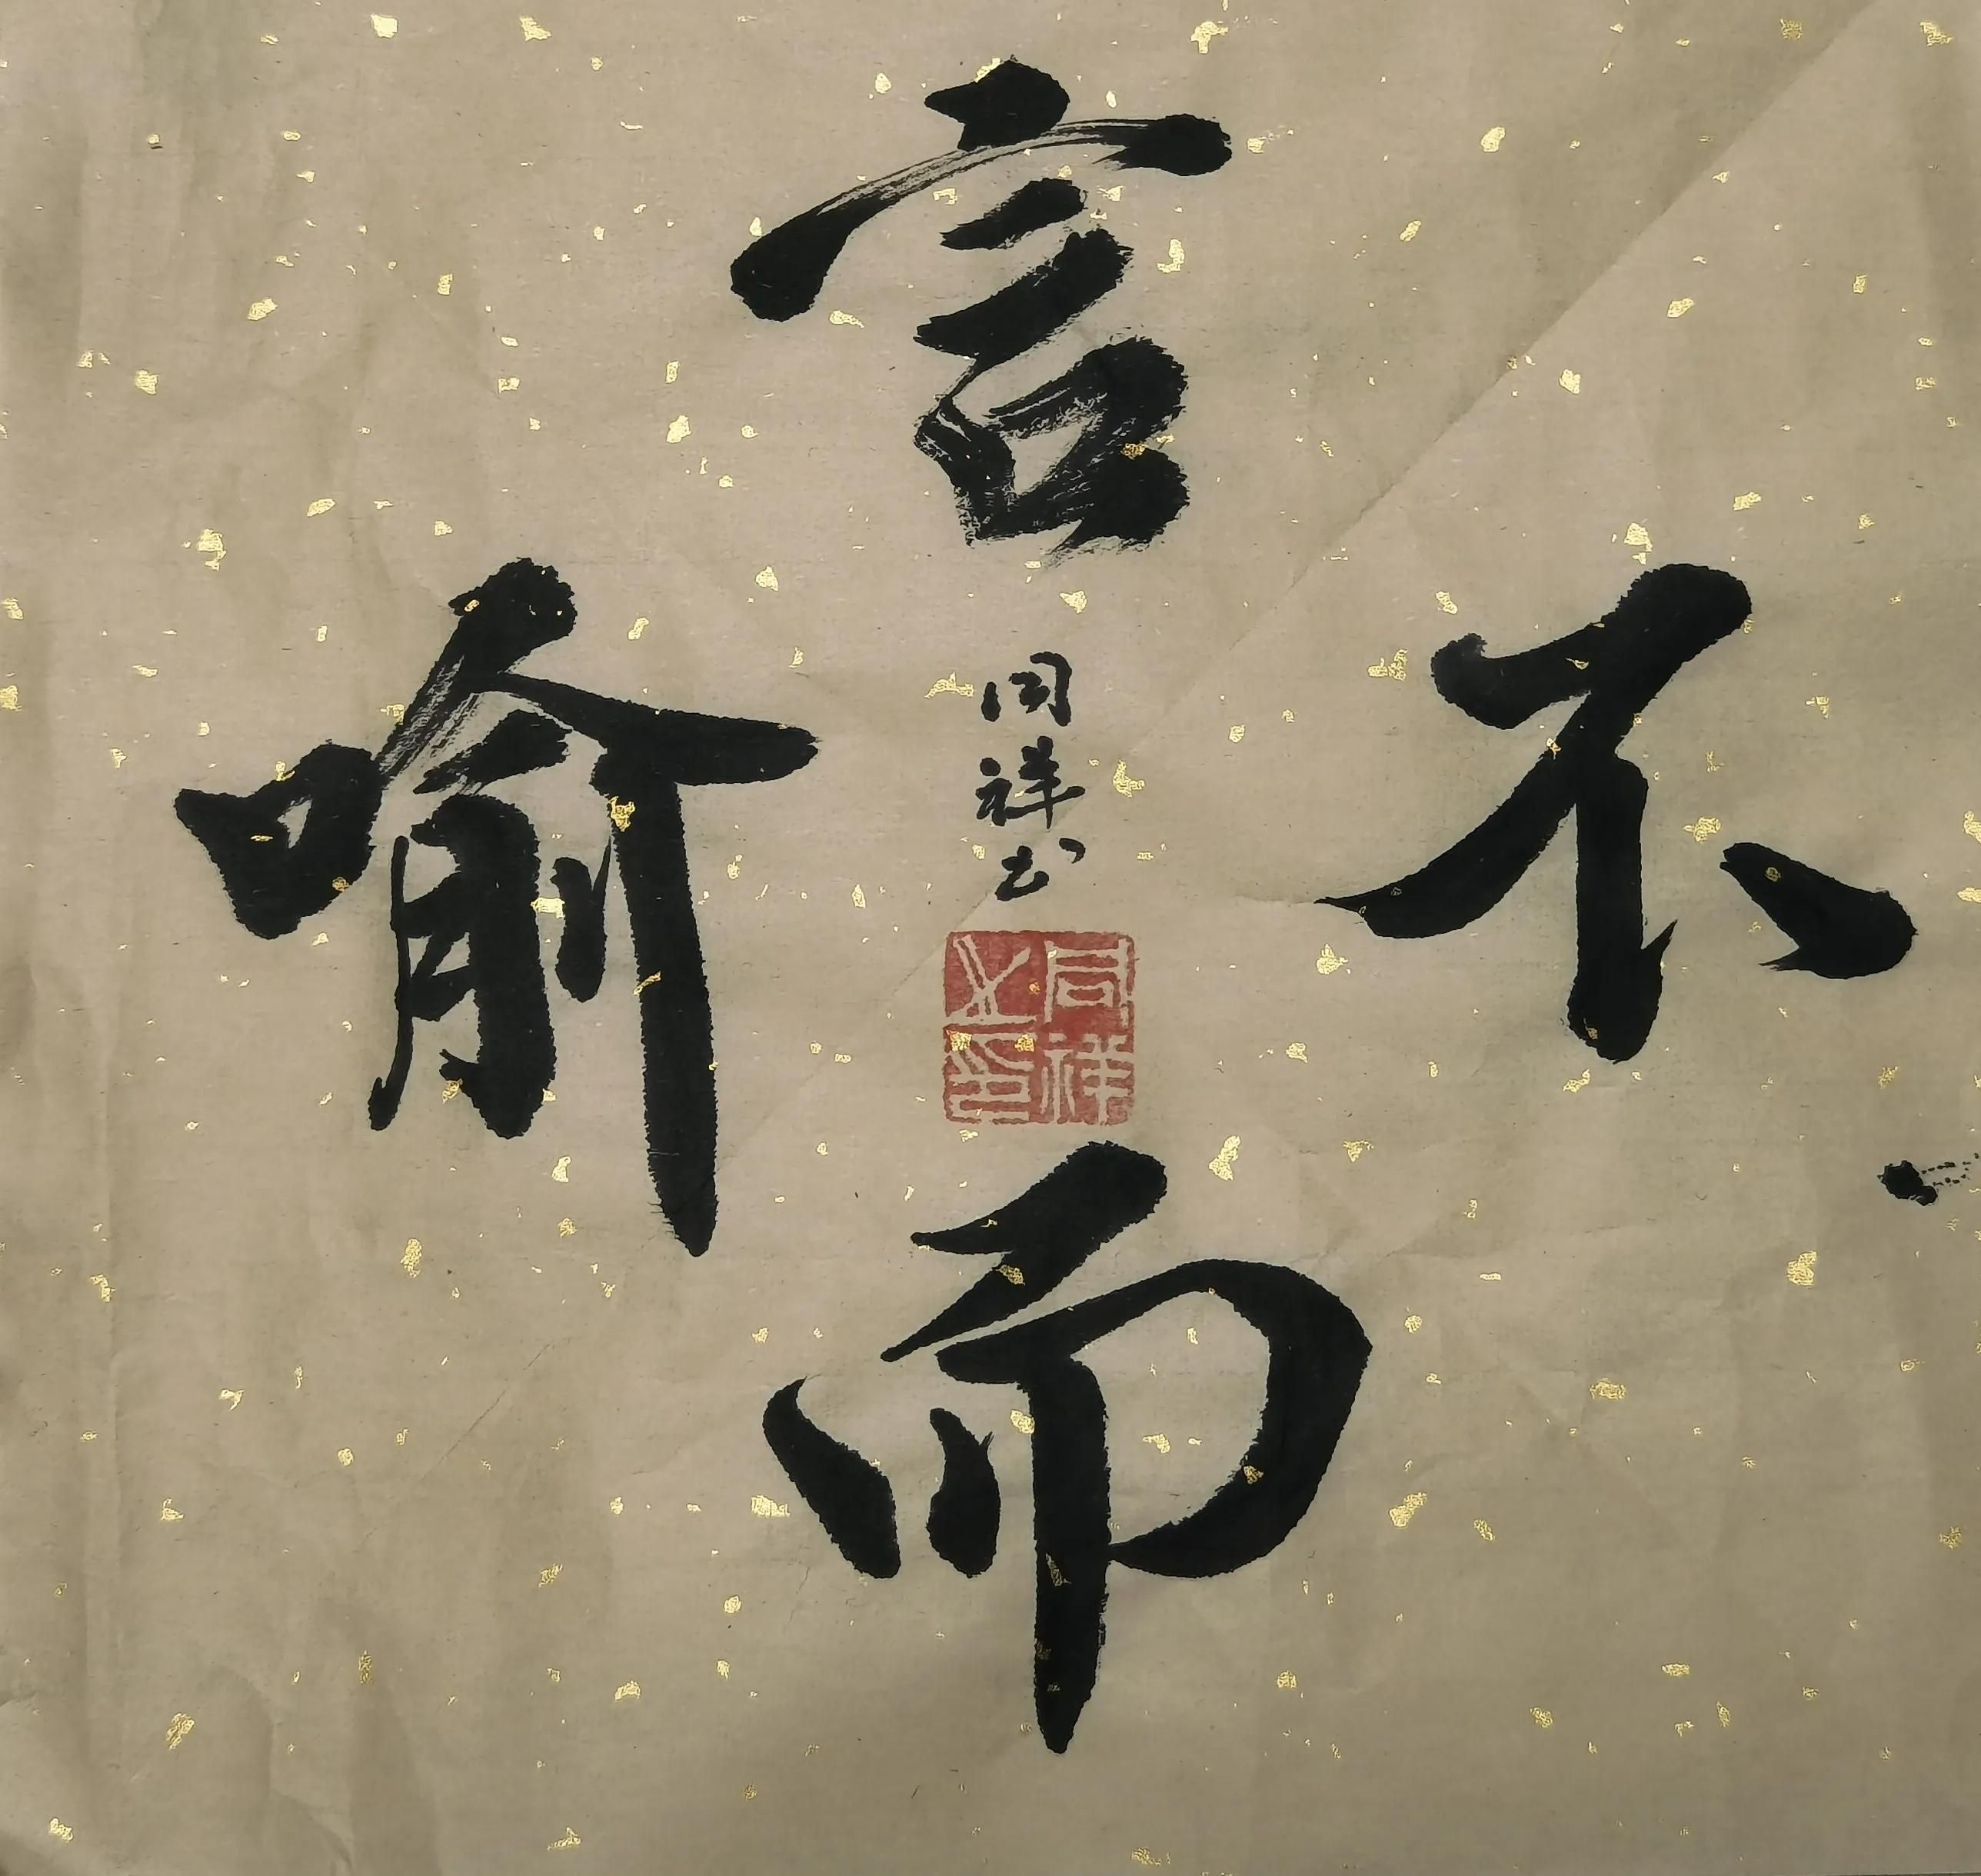 不
言
而
喻
同祥书
同祥之印